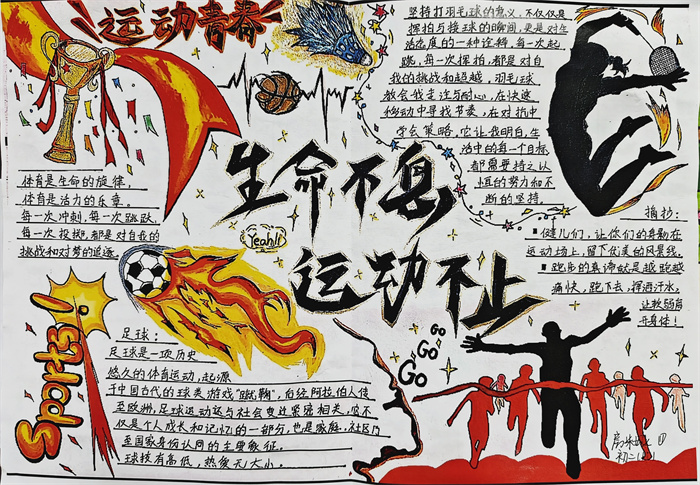 运动青春
坚持打羽毛球的意义,不仅仅是
挥拍与接球的瞬间,更是对生
活态度的一种诠释,每一次起
跳,每一次挥拍,都是对自
我的挑战和超越,羽毛球
教会我专注与耐心,在快速
移动中寻找节奏,在对抗中
学会策略,它让我明白,生
活中的每一个目标,
都需要持之以
恒的努力和不
断的坚持。
体育是生命的旋律,
体育是活力的乐章。
每一次冲刺,每一次跳跃,
每一次投掷,都是对自我的
挑战和对梦的追逐
生命不息
Yeah!!
运动不止
摘抄:
健儿们,让你们的身影在
运动场上,留下优美的风景线。
跑步的真谛就是越跑越
痛快,跑下去,挥洒汗水,
让软弱离
开身体!
Sports!
足球:
足球是一项历史
悠久的体育运动,起源
于中国古代的球类游戏"蹴鞠",后经阿拉伯人传
至欧洲,足球运动还与社会变迁紧密相关,它不
仅是个人成长和记忆的一部分,也是家庭、社区乃
至国家身份认同的重要象征。
球技有高低,热爱无大小。
GO
GO
GO
初二